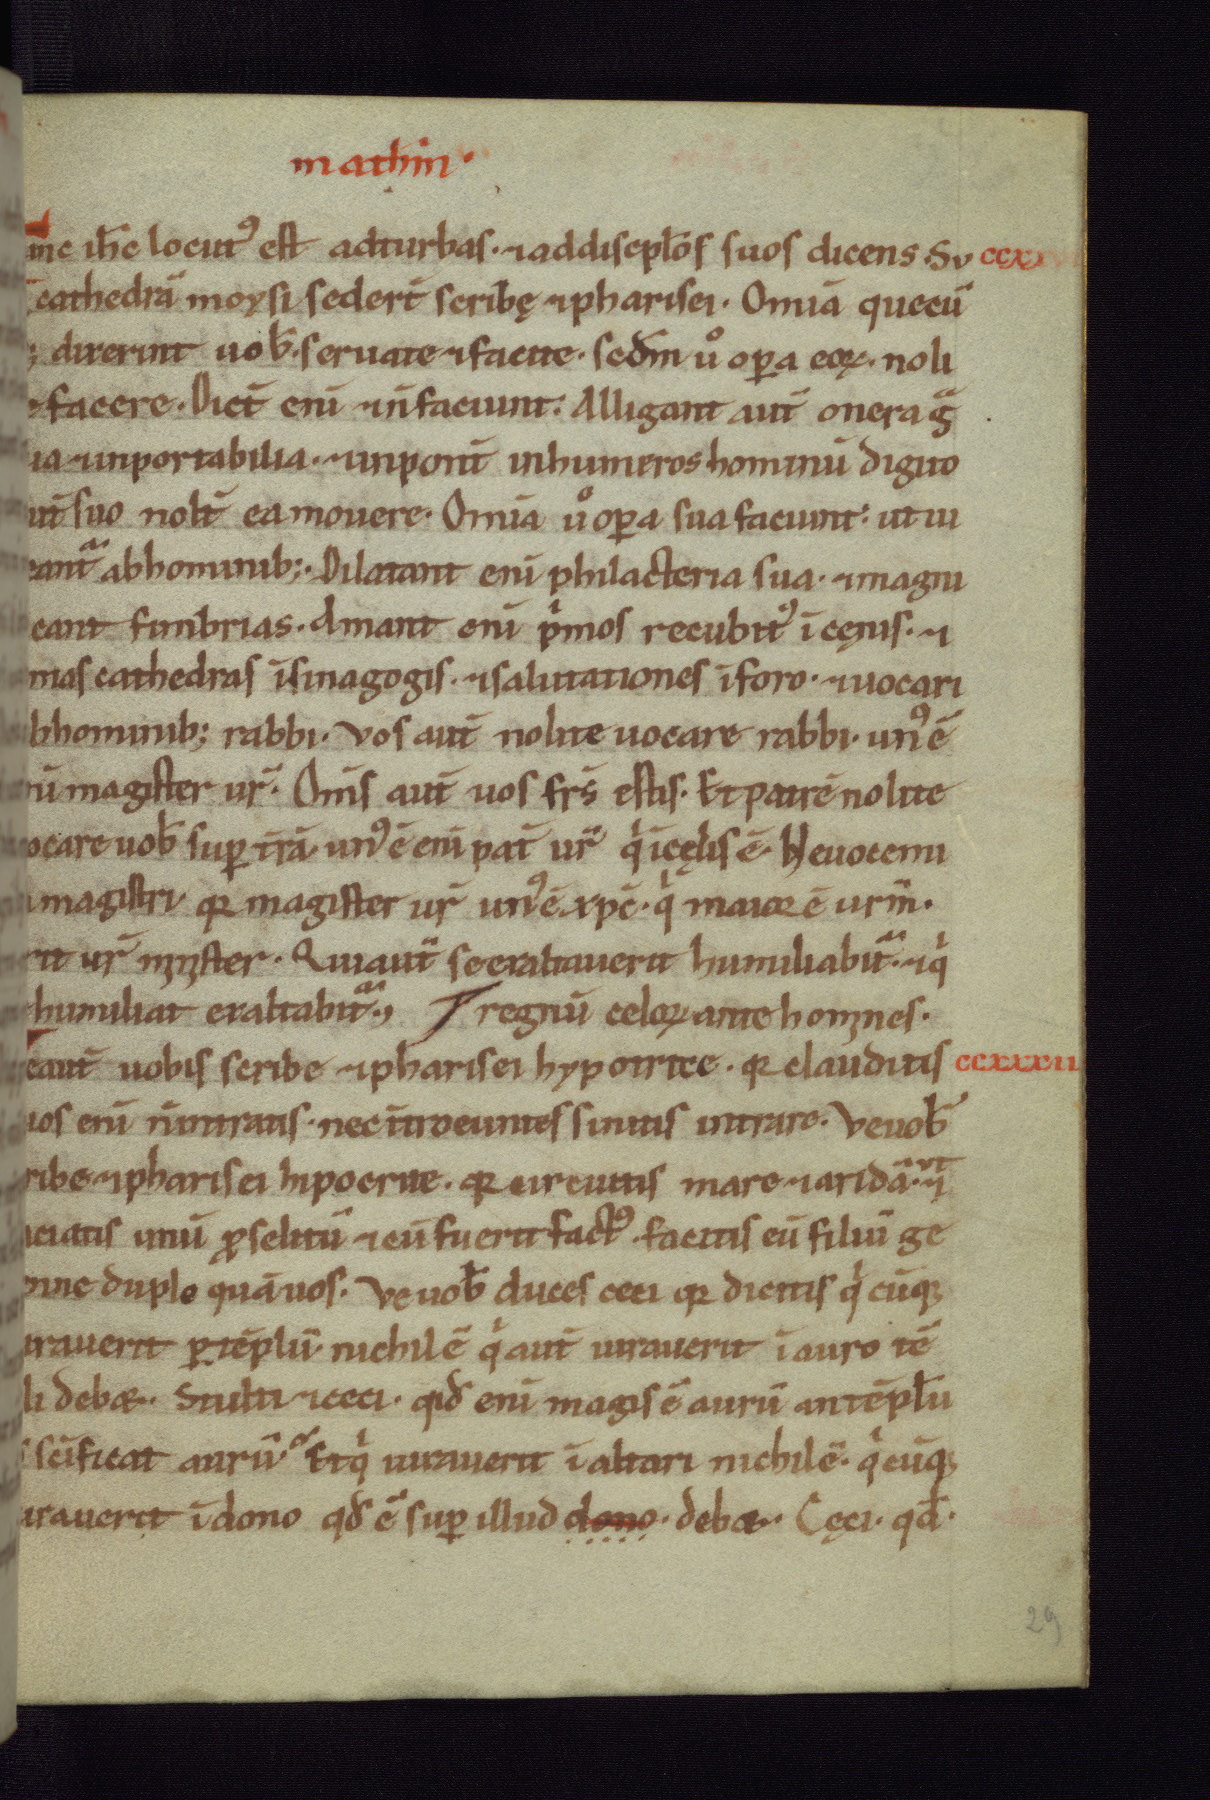 mathm̄·
Tūnc ih̄c locut᷒ est adturbas· ⁊addiscpl̄os suos dicens· Su ccxx
cathedrā moysi sedert̄ scribę ⁊pharisei· Om̄ia quecū
; dixerint uob̄· seruate ⁊facite· sedm̄ uͦ oꝑa eoꝝ· noli
facere· Dict̄ eni̅ ⁊n̄faciunt: Alligant aut̄ onera gͣ
uia ⁊inportabilia· ⁊inpont̄ inhumeros hominū digito
aut̄ suo nolt̄ ea mouere· Om̄ia uͦ oꝑa sua faciunt: ut ui
eant᷑ abhominib;· Dilatant eni̅ philacteria sua· ⁊magni
cant fimbrias· Amant eni̅ pͥmos recubit᷒ i̅ cęnis· ⁊
mas cathedras i̅sinagogis· ⁊salutationes i̅foro· ⁊uocari
bhominib; rabbi· Vos aut̄ nolite uocare rabbi· un᷒ ē
ni̅ magister ur̄· Om̄s aut̄ uos frs̄ estis· Et patrē nolite
ocare uob̄ suꝑ tr̄ā· un᷒ ē eni̅ pat̄ ur̄ qͥ i̅cęlis ē· Neuocemi
magistri· qꝛ magister ur̄ un᷒ ē xpc̄· qͥ maior ē urm̄·
rit ur̄ minister· Qui aut̄ se exaltauerit humiliabit᷑· ⁊qͥ
humiliat exaltabit᷑·, regnū celoꝝ ante homines·
eaut̄ uobis scribe ⁊pharisei hypoctrice· qꝛ clauditis ccxxxii
uos eni̅ n̄intratis· nec i̅troeuntes sinitis intrare· Veuob̄
ribe ⁊pharisei hipocrite· qꝛ circuitis mare ⁊aridā· ut
aciatis unū ꝓselitū ⁊cū fuerit fact᷒· facitis eū filiū ge
enne duplo quā uos· Ve uob̄ duces ceci qꝛ dicitis qͥcūqꝫ
urauerit ꝑ tēplū nichil ē qͥ aut̄ iurauerit i̅ auro tē
li debet· Stulti ⁊ceci· qid̄ eni̅ magis ē aurū an tēplū
scīficat aurū· Et qͥ iurauerit i̅ altari nichil ē· qͥcūqꝫ
urauerit i̅ dono qd̄ ē suꝑ illud dono· debet· Cęci· qd̄·
29